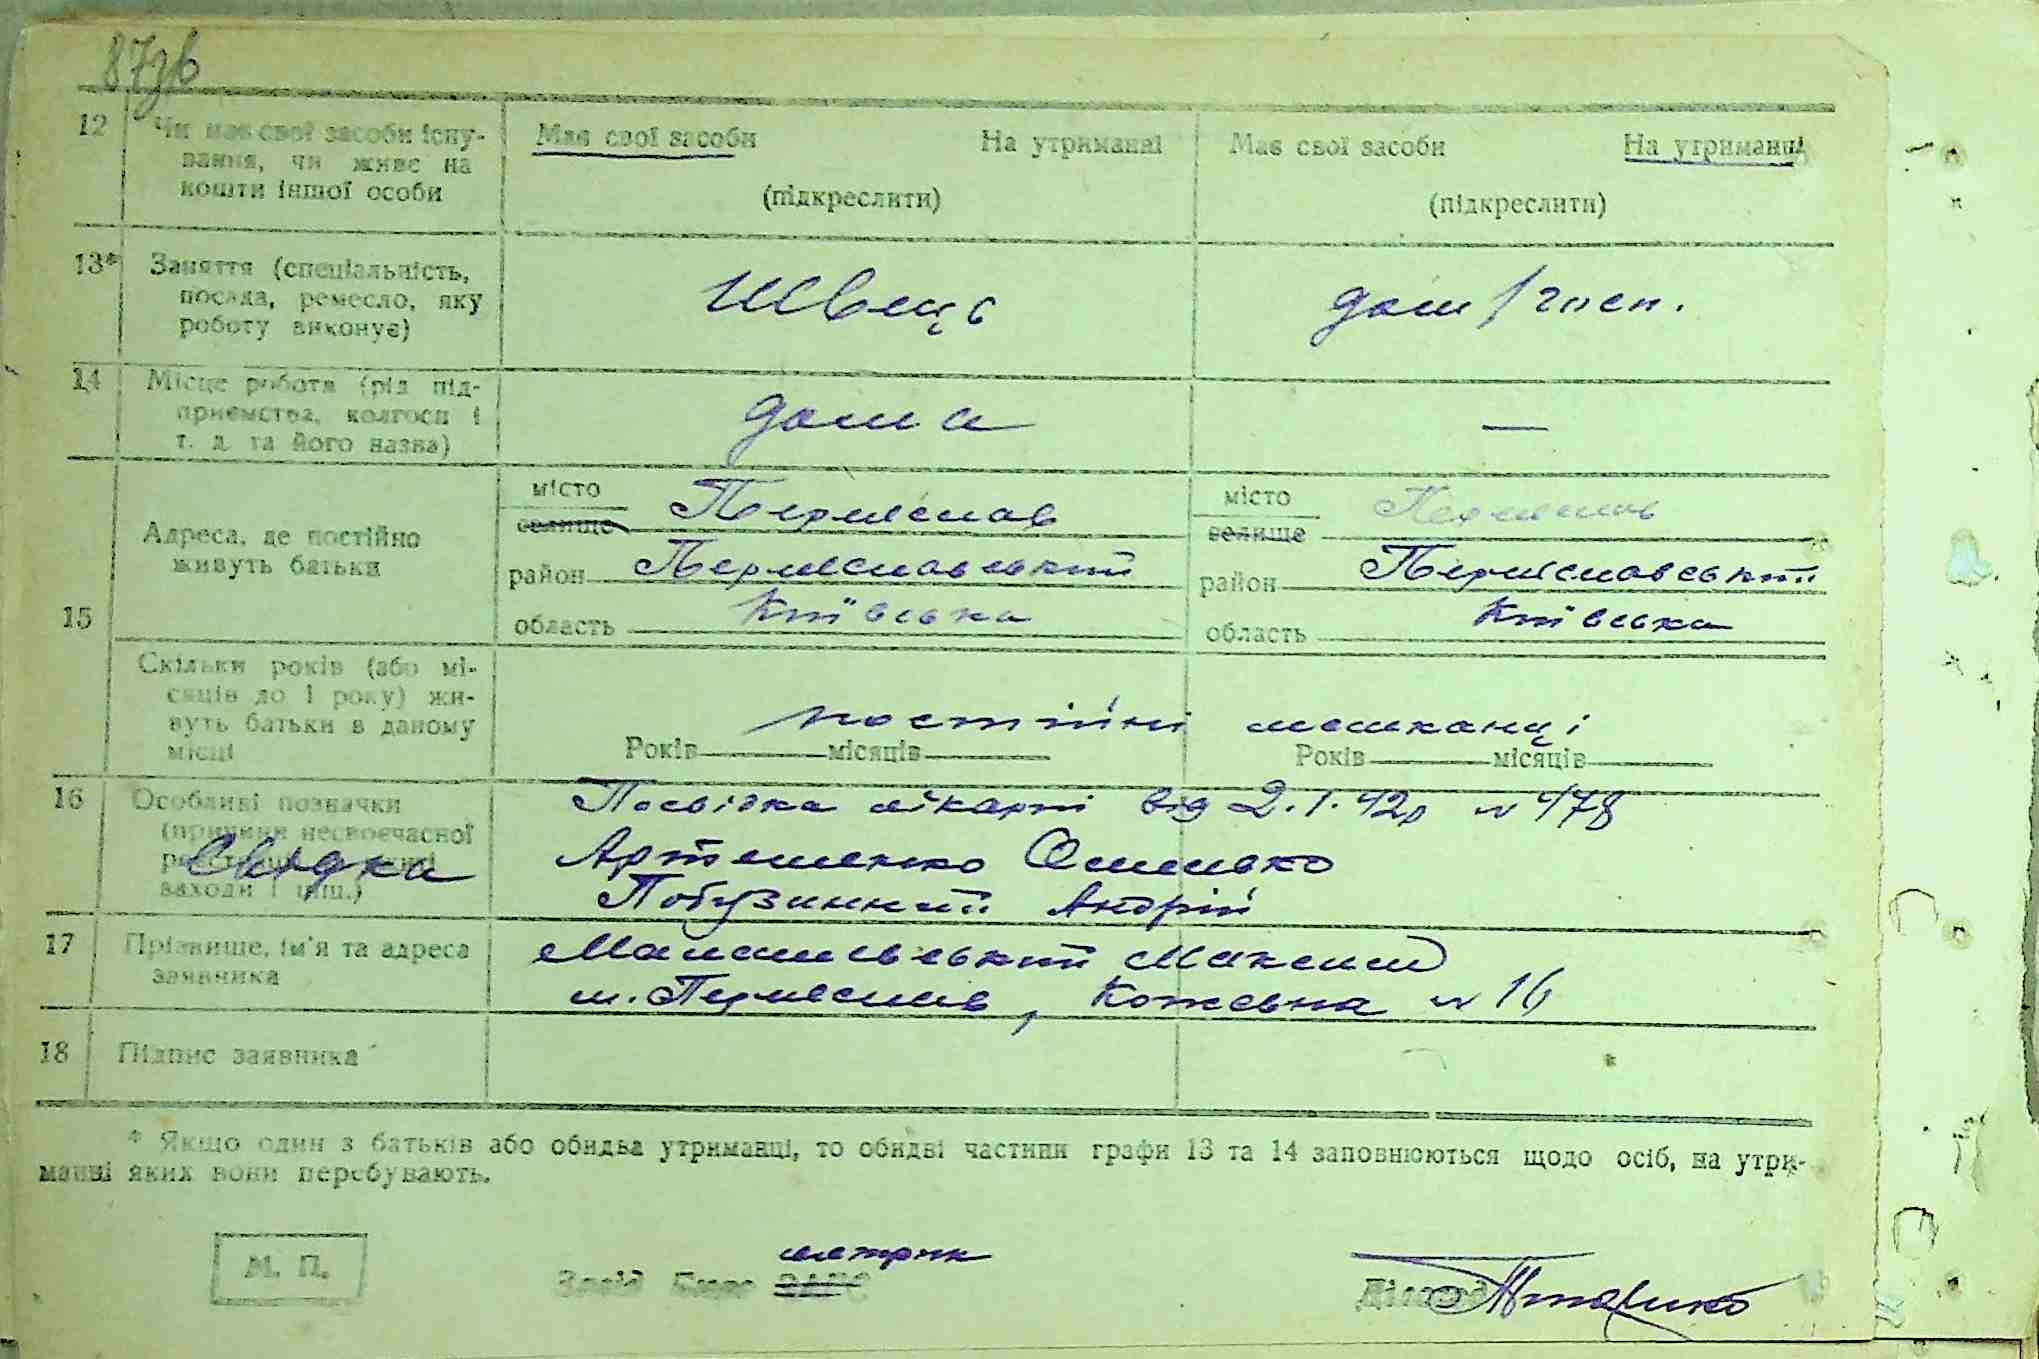 87зв
12 Чи має свої засоби існу- Має свої засоби На утриманні Має свої засоби На утриманні
вання, чи живе на
кошти іншої особи (підкреслити) (підкреслити)
13* Заняття (спеціальність,
посада, ремесло, яку Швець дом/госп.
роботу виконує)
14 Місце роботи (рід під-
приємства, колгосп і дома —
т. д. та його назва)
місто Переяслав місто Переяслав
селище селище
Адреса, де постійно
живуть батьки
район Переяславський район Переяславський
15
область Київська область Київська
Скільки років (або мі-
сяців до 1 року) жи-
вуть батьки в даному постійні мешканці
місці Років місяців Років місяців
16 Особливі позначки Посвідка лікарні від 2.1.42р № 478
(причини несвоєчасної
Свідки Артеменко
заходи і інш.) Андрій
17 Прізвище, ім'я та адреса Максим
заявника м. Переяслав, № 16
18 Підпис заявника
* Якщо один з батьків або обидва утриманці, то обидві частини графи 13 та 14 заповнюються щодо осіб, на утри-
манні яких вони перебувають.
метрик
М. П. Завід. Бюро ЗАГС Діловод